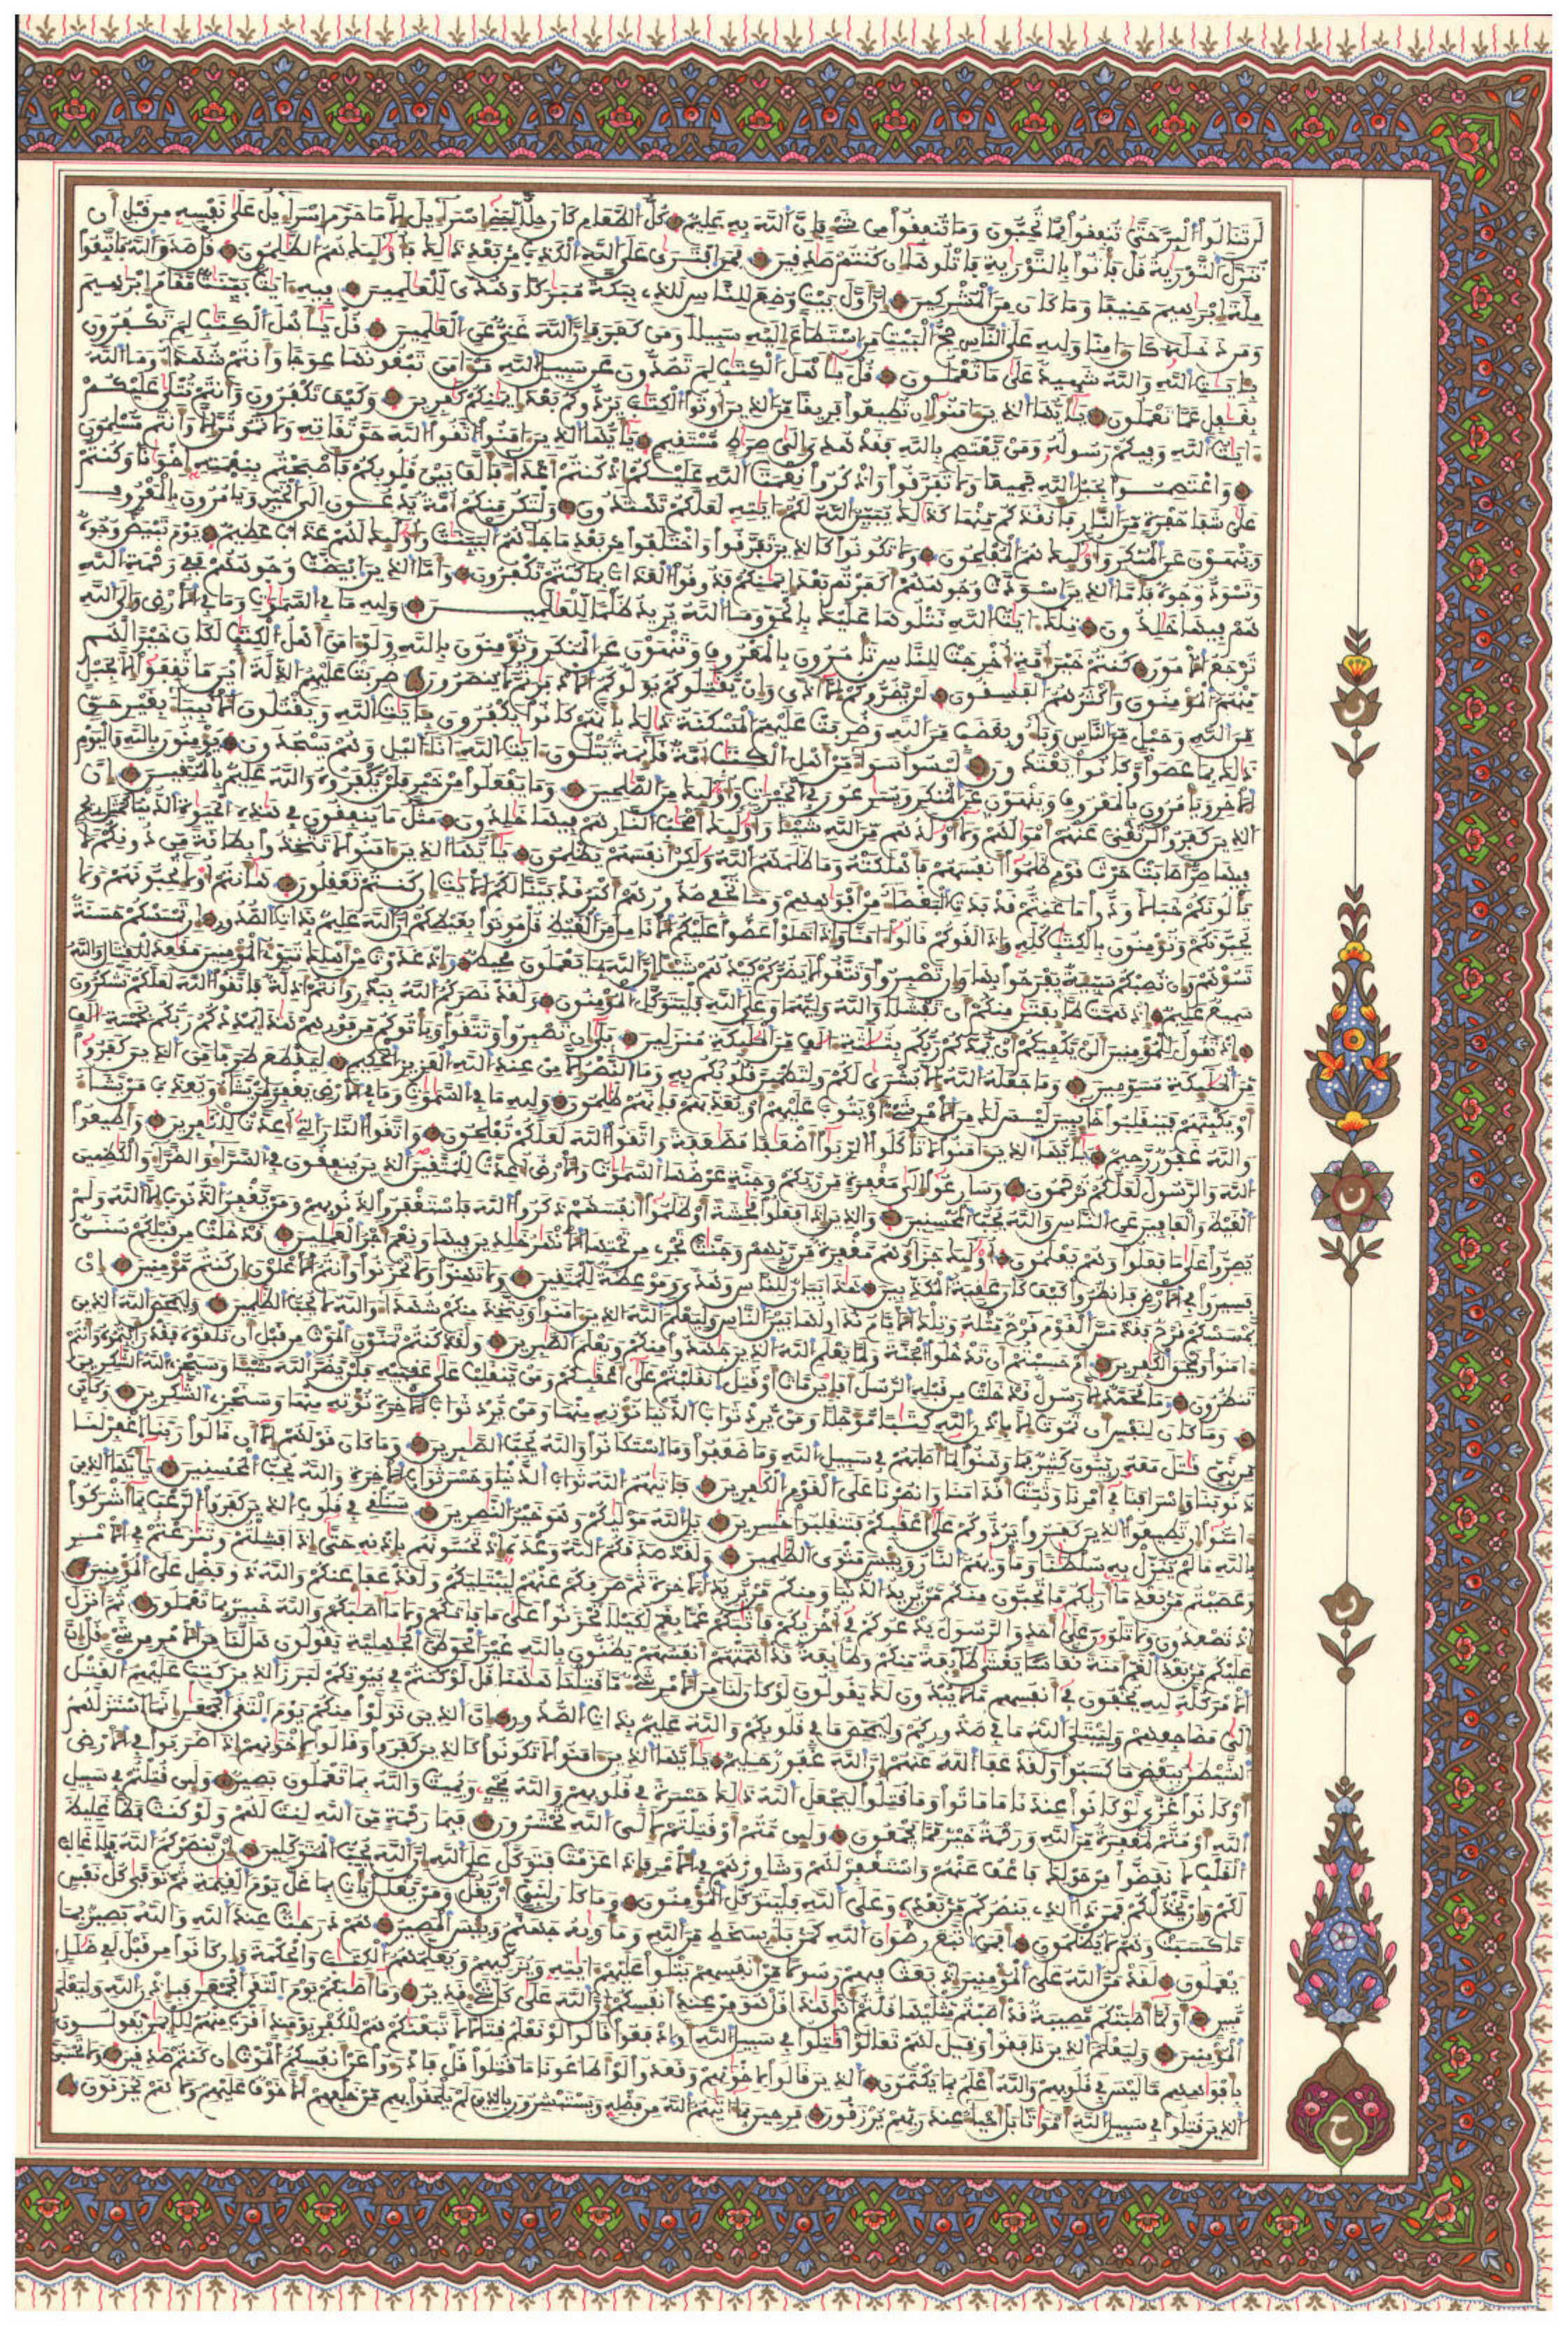 لن تنالوا البر حتى تنفقوا مما تحبون وما تنفقوا من شيء فإن الله به عليم كل الطعام كان حلا لبني إسرائيل إلا ما حرم إسرائيل على نفسه من قبل أن
تنزل التورية قل فاتوا بالتورية فاتلوها إن كنتم صادقين فمن افترى على الله الكذب من بعد ذلك فأولئك هم الظالمون قل صدق الله فاتبعوا
ملة إبراهيم حنيفا وما كان من المشركين إن أول بيت وضع للناس للذي ببكة مباركا وهدى للعالمين فيه آيات بينات مقام إبراهيم
ومن دخله كان آمنا ولله على الناس حج البيت من استطاع إليه سبيلا ومن كفر فإن الله غني عن العالمين قل يا أهل الكتاب لم تكفرون
بآيات الله والله شهيد على ما تعملون قل يا أهل الكتاب لم تصدون عن سبيل الله من آمن تبغونها عوجا وأنتم شهداء وما الله
بغافل عما تعملون يا أيها الذين آمنوا إن تطيعوا فريقا من الذين أوتوا الكتاب يردوكم بعد إيمانكم كافرين وكيف تكفرون وأنتم تتلى عليكم
آيات الله وفيكم رسوله ومن يعتصم بالله فقد هدي إلى صراط مستقيم يا أيها الذين آمنوا اتقوا الله حق تقاته ولا تموتن إلا وأنتم مسلمون
واعتصموا بحبل الله جميعا ولا تفرقوا واذكروا نعمت الله عليكم إذ كنتم أعداء فألف بين قلوبكم فأصبحتم بنعمته إخوانا وكنتم
على شفا حفرة من النار فأنقذكم منها كذلك يبين الله لكم آياته لعلكم تهتدون ولتكن منكم أمة يدعون إلى الخير ويامرون بالمعروف
وينهون عن المنكر وأولئك هم المفلحون ولا تكونوا كالذين تفرقوا واختلفوا من بعد ما جاءهم البينات وأولئك لهم عذاب عظيم يوم تبيض وجوه
وتسود وجوه فأما الذين اسودت وجوههم أكفرتم بعد إيمانكم فذوقوا العذاب بما كنتم تكفرون وأما الذين ابيضت وجوههم ففي رحمة الله
هم فيها خالدون تلك آيات الله نتلوها عليك بالحق وما الله يريد ظلما للعالمين ولله ما في السماوات وما في الأرض وإلى الله
ترجع الأمور كنتم خير أمة أخرجت للناس تامرون بالمعروف وتنهون عن المنكر وتومنون بالله ولو آمن أهل الكتاب لكان خيرا لهم
منهم المومنون وأكثرهم الفاسقون لن يضروكم إلا أذى وإن يقاتلوكم يولوكم الأدبار ثم لا ينصرون ضربت عليهم الذلة أين ما ثقفوا إلا بحبل
من الله وحبل من الناس وباءو بغضب من الله وضربت عليهم المسكنة ذلك بأنهم كانوا يكفرون بآيات الله ويقتلون الأنبئاء بغير حق
ذلك بما عصوا وكانوا يعتدون ليسوا سواء من أهل الكتاب أمة قائمة يتلون آيات الله آناء اليل وهم يسجدون يومنون بالله واليوم
الآخر ويامرون بالمعروف وينهون عن المنكر ويسارعون في الخيرات وأولئك من الصالحين وما تفعلوا من خير فلن تكفروه والله عليم بالمتقين إن
الذين كفروا لن تغني عنهم أموالهم ولا أولادهم من الله شيئا وأولئك أصحاب النار هم فيها خالدون مثل ما ينفقون في هذه الحيوة الدنيا كمثل ريح
فيها صر أصابت حرث قوم ظلموا أنفسهم فأهلكته وما ظلمهم الله ولكن أنفسهم يظلمون يا أيها الذين آمنوا لا تتخذوا بطانة من دونكم لا
يالونكم خبالا ودوا ما عنتم قد بدت البغضاء من أفواههم وما تخفي صدورهم أكبر قد بينا لكم الآيات إن كنتم تعقلون هاأنتم أولاء تحبونهم ولا
يحبونكم وتومنون بالكتاب كله وإذا لقوكم قالوا آمنا وإذا خلوا عضوا عليكم الأنامل من الغيظ قل موتوا بغيظكم إن الله عليم بذات الصدور إن تمسسكم حسنة
تسؤهم وإن تصبكم سيئة يفرحوا بها وإن تصبروا وتتقوا لا يضركم كيدهم شيئا إن الله بما يعملون محيط وإذ غدوت من أهلك تبوئ المومنين مقاعد للقتال والله
سميع عليم إذ همت طائفتان منكم أن تفشلا والله وليهما وعلى الله فليتوكل المومنون ولقد نصركم الله ببدر وأنتم أذلة فاتقوا الله لعلكم تشكرون
إذ تقول للمومنين ألن يكفيكم أن يمدكم ربكم بثلاثة آلاف من الملائكة منزلين بلى إن تصبروا وتتقوا وياتوكم من فورهم هذا يمددكم ربكم بخمسة آلاف
من الملائكة مسومين وما جعله الله إلا بشرى لكم ولتطمئن قلوبكم به وما النصر إلا من عند الله العزيز الحكيم ليقطع طرفا من الذين كفروا
أو يكبتهم فينقلبوا خائبين ليس لك من الأمر شيء أو يتوب عليهم أو يعذبهم فإنهم ظالمون ولله ما في السماوات وما في الأرض يغفر لمن يشاء ويعذب من يشاء
والله غفور رحيم يا أيها الذين آمنوا لا تاكلوا الربوا أضعافا مضاعفة واتقوا الله لعلكم تفلحون واتقوا النار التي أعدت للكافرين وأطيعوا
الله والرسول لعلكم ترحمون سارعوا إلى مغفرة من ربكم وجنة عرضها السماوات والأرض أعدت للمتقين الذين ينفقون في السراء والضراء والكاظمين
الغيظ والعافين عن الناس والله يحب المحسنين والذين إذا فعلوا فاحشة أو ظلموا أنفسهم ذكروا الله فاستغفروا لذنوبهم ومن يغفر الذنوب إلا الله ولم
يصروا على ما فعلوا وهم يعلمون أولئك جزاؤهم مغفرة من ربهم وجنات تجري من تحتها الأنهار خالدين فيها ونعم أجر العاملين قد خلت من قبلكم سنن
فسيروا في الأرض فانظروا كيف كان عاقبة المكذبين هذا بيان للناس وهدى وموعظة للمتقين ولا تهنوا ولا تحزنوا وأنتم الأعلون إن كنتم مومنين إن
يمسسكم قرح فقد مس القوم قرح مثله وتلك الأيام نداولها بين الناس وليعلم الله الذين آمنوا ويتخذ منكم شهداء والله لا يحب الظالمين وليمحص الله الذين
آمنوا ويمحق الكافرين أم حسبتم أن تدخلوا الجنة ولما يعلم الله الذين جاهدوا منكم ويعلم الصابرين ولقد كنتم تمنون الموت من قبل أن تلقوه فقد رأيتموه وأنتم
تنظرون وما محمد إلا رسول قد خلت من قبله الرسل أفإن مات أو قتل انقلبتم على أعقابكم ومن ينقلب على عقبيه فلن يضر الله شيئا وسيجزي الله الشاكرين
وما كان لنفس أن تموت إلا بإذن الله كتابا مؤجلا ومن يرد ثواب الدنيا نوته منها ومن يرد ثواب الآخرة نوته منها وسنجزي الشاكرين وكأين
من نبيء قتل معه ربيون كثير فما وهنوا لما أصابهم في سبيل الله وما ضعفوا وما استكانوا والله يحب الصابرين وما كان قولهم إلا أن قالوا ربنا اغفر لنا
ذنوبنا وإسرافنا في أمرنا وثبت أقدامنا وانصرنا على القوم الكافرين فآتاهم الله ثواب الدنيا وحسن ثواب الآخرة والله يحب المحسنين يا أيها الذين
آمنوا إن تطيعوا الذين كفروا يردوكم على أعقابكم فتنقلبوا خاسرين بل الله موليكم وهو خير الناصرين سنلقي في قلوب الذين كفروا الرعب بما أشركوا
بالله ما لم ينزل به سلطانا ومأويهم النار وبيس مثوى الظالمين ولقد صدقكم الله وعده إذ تحسونهم بإذنه حتى إذا فشلتم وتنازعتم في الأمر
وعصيتم من بعد ما أريكم ما تحبون منكم من يريد الدنيا ومنكم من يريد الآخرة ثم صرفكم عنهم ليبتليكم ولقد عفا عنكم والله ذو فضل على المومنين
إذ تصعدون ولا تلوون على أحد والرسول يدعوكم في أخريكم فأثابكم غما بغم لكيلا تحزنوا على ما فاتكم ولا ما أصابكم والله خبير بما تعملون ثم أنزل
عليكم من بعد الغم أمنة نعاسا يغشى طائفة منكم وطائفة قد أهمتهم أنفسهم يظنون بالله غير الحق ظن الجاهلية يقولون هل لنا من الأمر من شيء قل إن
الأمر كله لله يخفون في أنفسهم ما لا يبدون لك يقولون لو كان لنا من الأمر شيء ما قتلنا هاهنا قل لو كنتم في بيوتكم لبرز الذين كتب عليهم القتل
إلى مضاجعهم وليبتلي الله ما في صدوركم وليمحص ما في قلوبكم والله عليم بذات الصدور إن الذين تولوا منكم يوم التقى الجمعان إنما استزلهم
الشيطان ببعض ما كسبوا ولقد عفا الله عنهم إن الله غفور حليم يا أيها الذين آمنوا لا تكونوا كالذين كفروا وقالوا لإخوانهم إذا ضربوا في الأرض
أو كانوا غزى لو كانوا عندنا ما ماتوا وما قتلوا ليجعل الله ذلك حسرة في قلوبهم والله يحي ويميت والله بما تعملون بصير ولئن قتلتم في سبيل
الله أو متم لمغفرة من الله ورحمة خير مما تجمعون ولئن متم أو قتلتم لإلى الله تحشرون فبما رحمة من الله لنت لهم ولو كنت فظا غليظ
القلب لانفضوا من حولك فاعف عنهم واستغفر لهم وشاورهم في الأمر فإذا عزمت فتوكل على الله إن الله يحب المتوكلين إن ينصركم الله فلا غالب
لكم وإن يخذلكم فمن ذا الذي ينصركم من بعده وعلى الله فليتوكل المومنون وما كان لنبيء أن يغل ومن يغلل يات بما غل يوم القيامة ثم توفى كل نفس
ما كسبت وهم لا يظلمون أفمن اتبع رضوان الله كمن باء بسخط من الله ومأويه جهنم وبيس المصير هم درجات عند الله والله بصير بما
يعملون لقد من الله على المومنين إذ بعث فيهم رسولا من أنفسهم يتلوا عليهم آياته ويزكيهم ويعلمهم الكتاب والحكمة وإن كانوا من قبل لفي ضلال
مبين أولما أصابتكم مصيبة قد أصبتم مثليها قلتم أنى هذا قل هو من عند أنفسكم إن الله على كل شيء قدير وما أصابكم يوم التقى الجمعان فبإذن الله وليعلم
المومنين وليعلم الذين نافقوا وقيل لهم تعالوا قاتلوا في سبيل الله أو ادفعوا قالوا لو نعلم قتالا لاتبعناكم هم للكفر يومئذ أقرب منهم للإيمان يقولون
بأفواههم ما ليس في قلوبهم والله أعلم بما يكتمون الذين قالوا لإخوانهم وقعدوا لو أطاعونا ما قتلوا قل فادرءوا عن أنفسكم الموت إن كنتم صادقين ولا تحسبن
الذين قتلوا في سبيل الله أمواتا بل أحياء عند ربهم يرزقون فرحين بما آتاهم الله من فضله ويستبشرون بالذين لم يلحقوا بهم من خلفهم ألا خوف عليهم ولا هم يحزنون
ن
ن
ن
ح